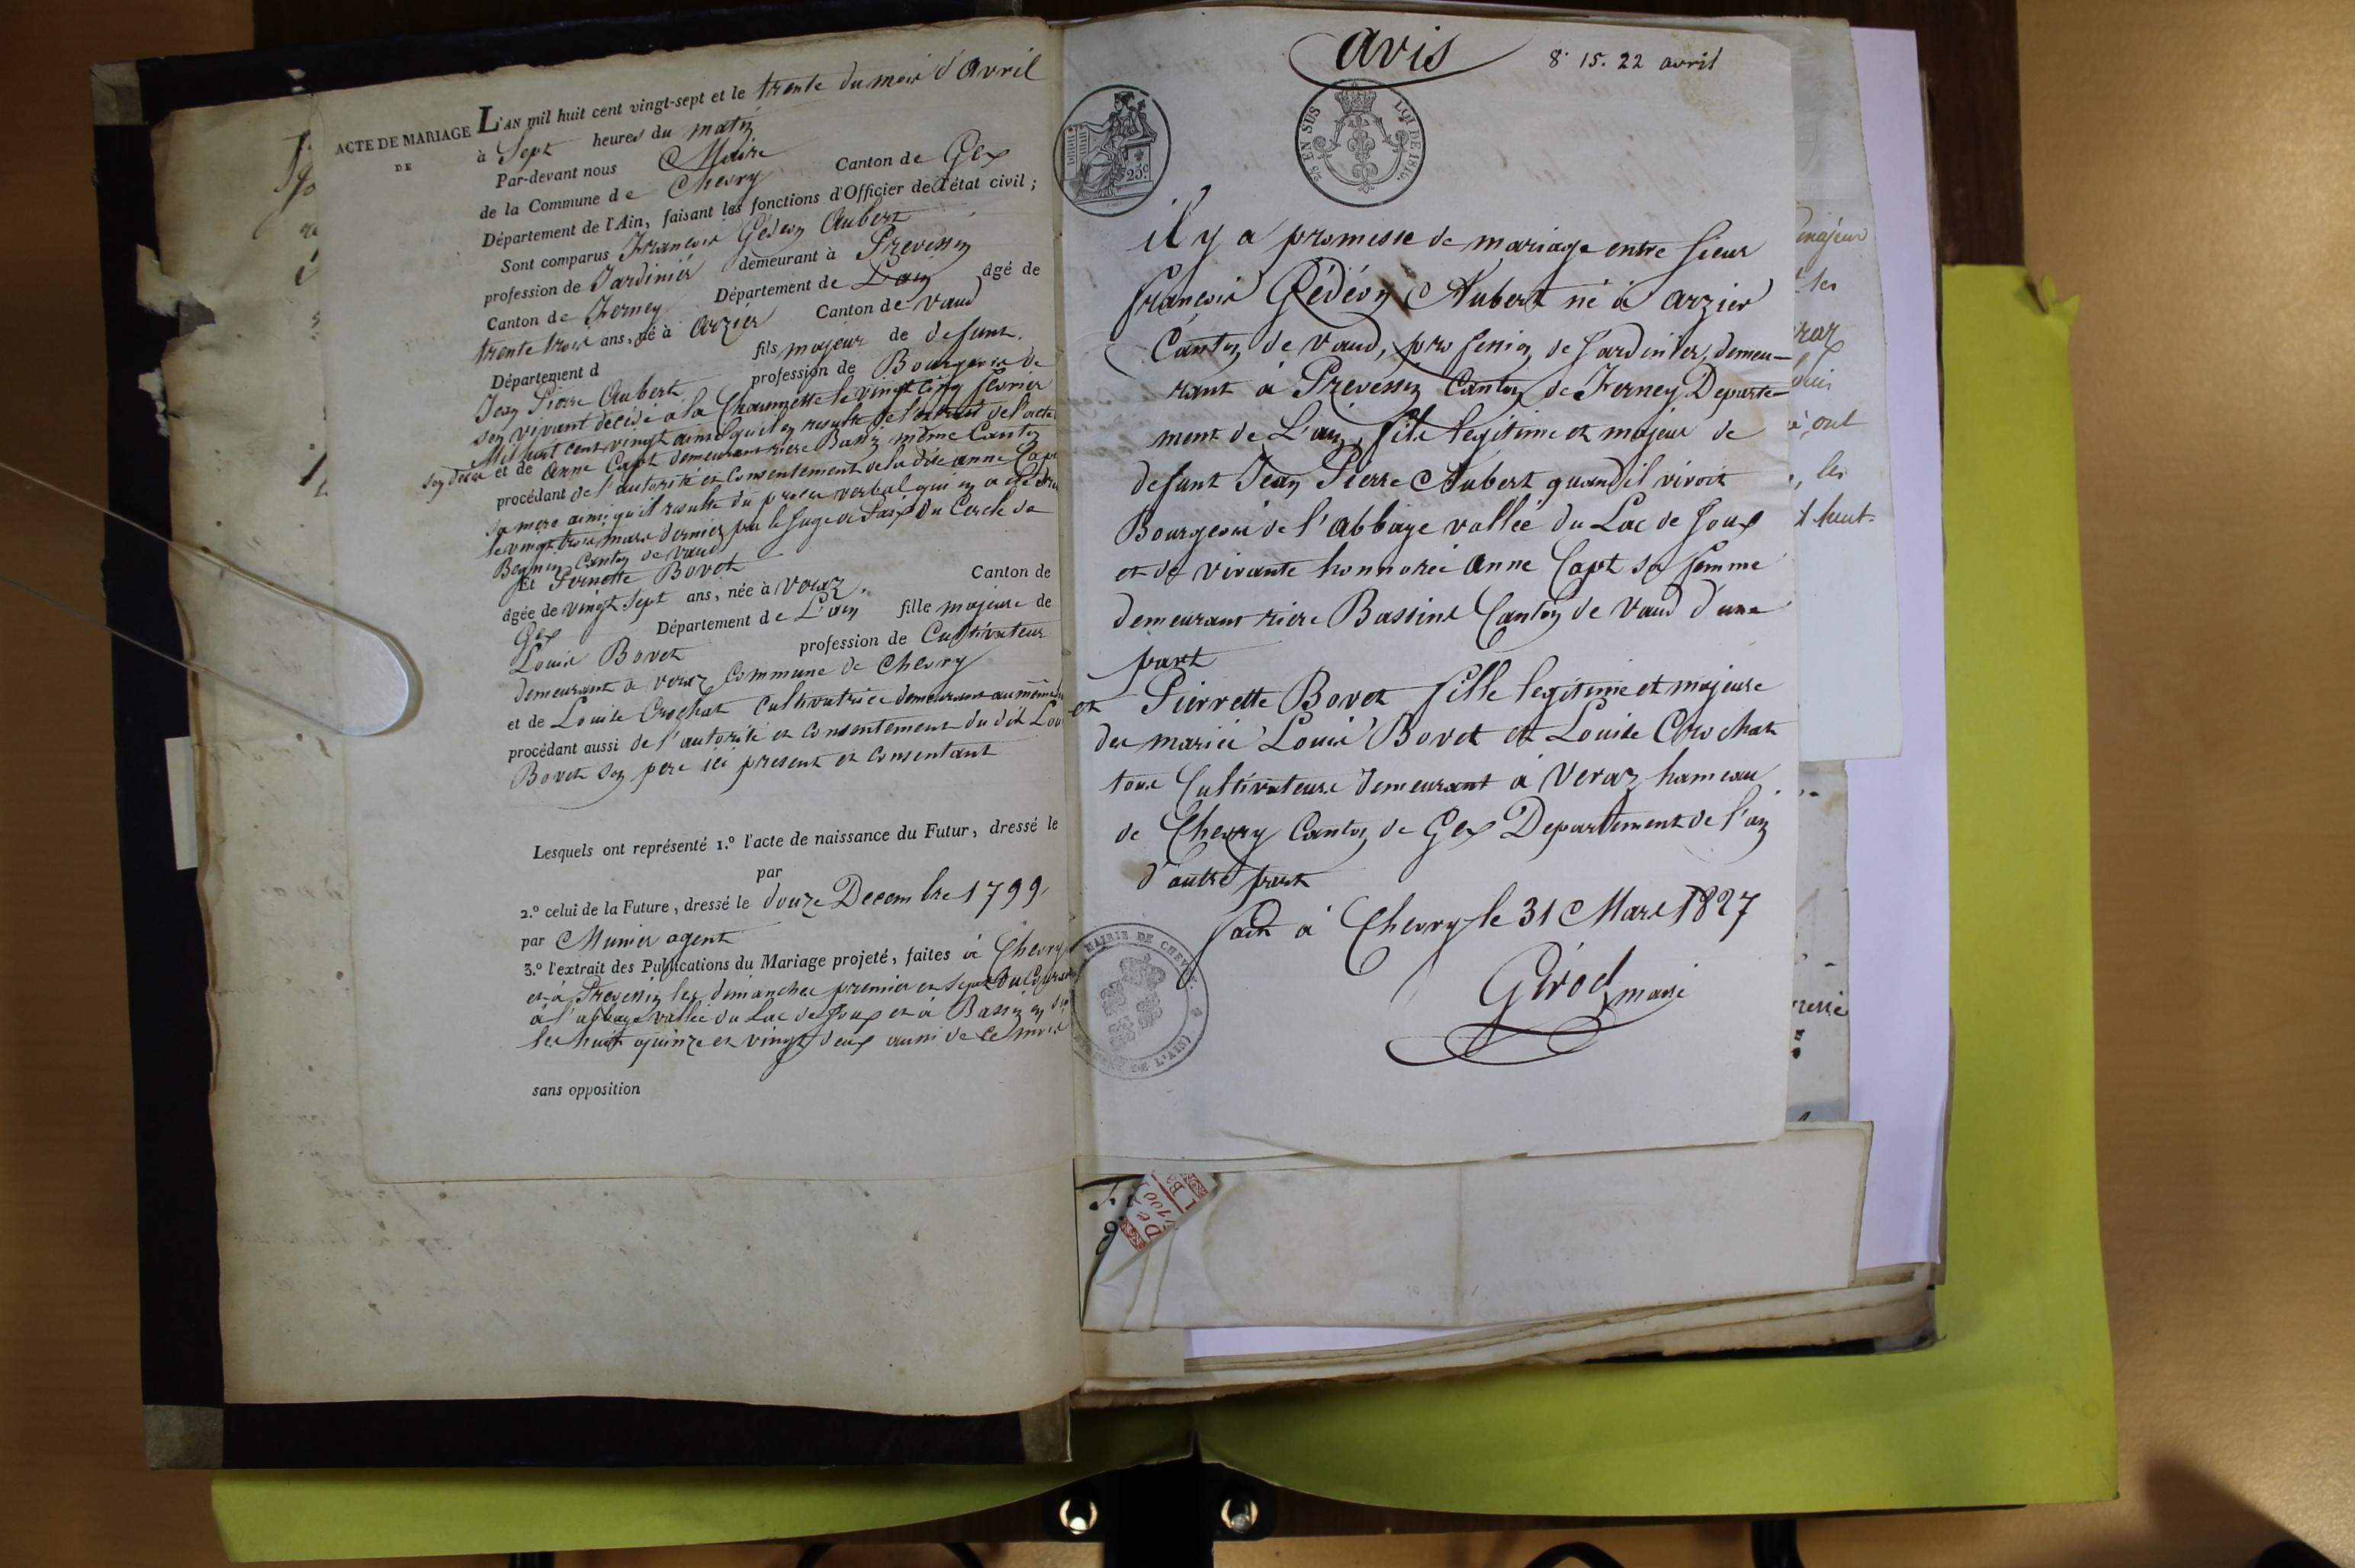 ACTE DE MARIAGE
DE
L'AN mil huit cent vingt-sept et le trente du mois d'Avril
à Sept heures du matin
Par-devant nous Maire
de la Commune de Chevry Canton de Gex
Département de l'Ain, faisant les fonctions d'Officier de l'état civil ;
Sont comparus François Gédeon Aubert
profession de Jardinier demeurant à Prevessin
Canton de Ferney Département de L'ain âgé de
trente trois ans, né à Arzier Canton de Vaud
Département d fils majeur de defunt
Jean Pierre Aubert profession de Bourgeois de
son vivant décédé à la Chaumette le vingt cinq fevrier
Mil huit cent vingt ainsi qu'il en resulte de l'extrait de l'acte
son décès et de Anne Capt demeurant rière Bassin même Canton
procédant de l'autorité et Consentement de la dite anne Capt
sa mere ainsi qu'il resulte du procès verbal qui en a été
le vingt trois mars dernier par le Juge de Paix du Cercle de
Begnin Canton de Vaud
Et Pernette Bovet
âgée de vingt sept ans, née à Veraz Canton de
Gex Département de L'ain fille majeure de
Louis Bovet profession de Cultivateur
demeurant à Veraz Commune de Chevry
et de Louise Crochat Cultivatrice demeurant au même
procédant aussi de l'autorité et Consentement du dit Lou
Bovet son pere ici present et Consentant
Lesquels ont représenté 1.º l'acte de naissance du Futur, dressé le
par
2.º celui de la Future, dressé le douze Decembre 1799
par Munier agent
3.º l'extrait des Publications du Mariage projeté, faites à Chevry
et à Prevessin les dimanches premier et sept du
à l'abbaye vallée du Lac de Joux et à Bassin
les huit quinze et vingt deux aussi de ce mois
sans opposition
avis
8. 15. 22 avril
25 EN SUS
LOI DE 1816.
25c
il y a promesse de mariage entre sieur
françois Gédéon Aubert né à arzier
Canton de Vaud, profession de Jardinier, demeu-
rant à Prevessin Canton de Ferney Departe-
ment de L'ain, fils legitime et majeur de
defunt Jean Pierre Aubert quand il vivoit
Bourgeois de l'abbaye vallée du Lac de Joux
et de vivante honnorée Anne Capt sa femme
demeurant rière Bassins Canton de Vaud d'une
part
et Pierrette Bovet fille legitime et majeure
des mariés Louis Bovet et Louise Crochat
tous Cultivateurs demeurant à Veraz hameau
de Chevry Canton de Gex Departement de l'ain
d'autre part
fait à Chevry le 31 Mars 1827
Girod maire
MAIRIE DE CHEVRY
DE L'AIN
majeur
ses
raz
ont
les